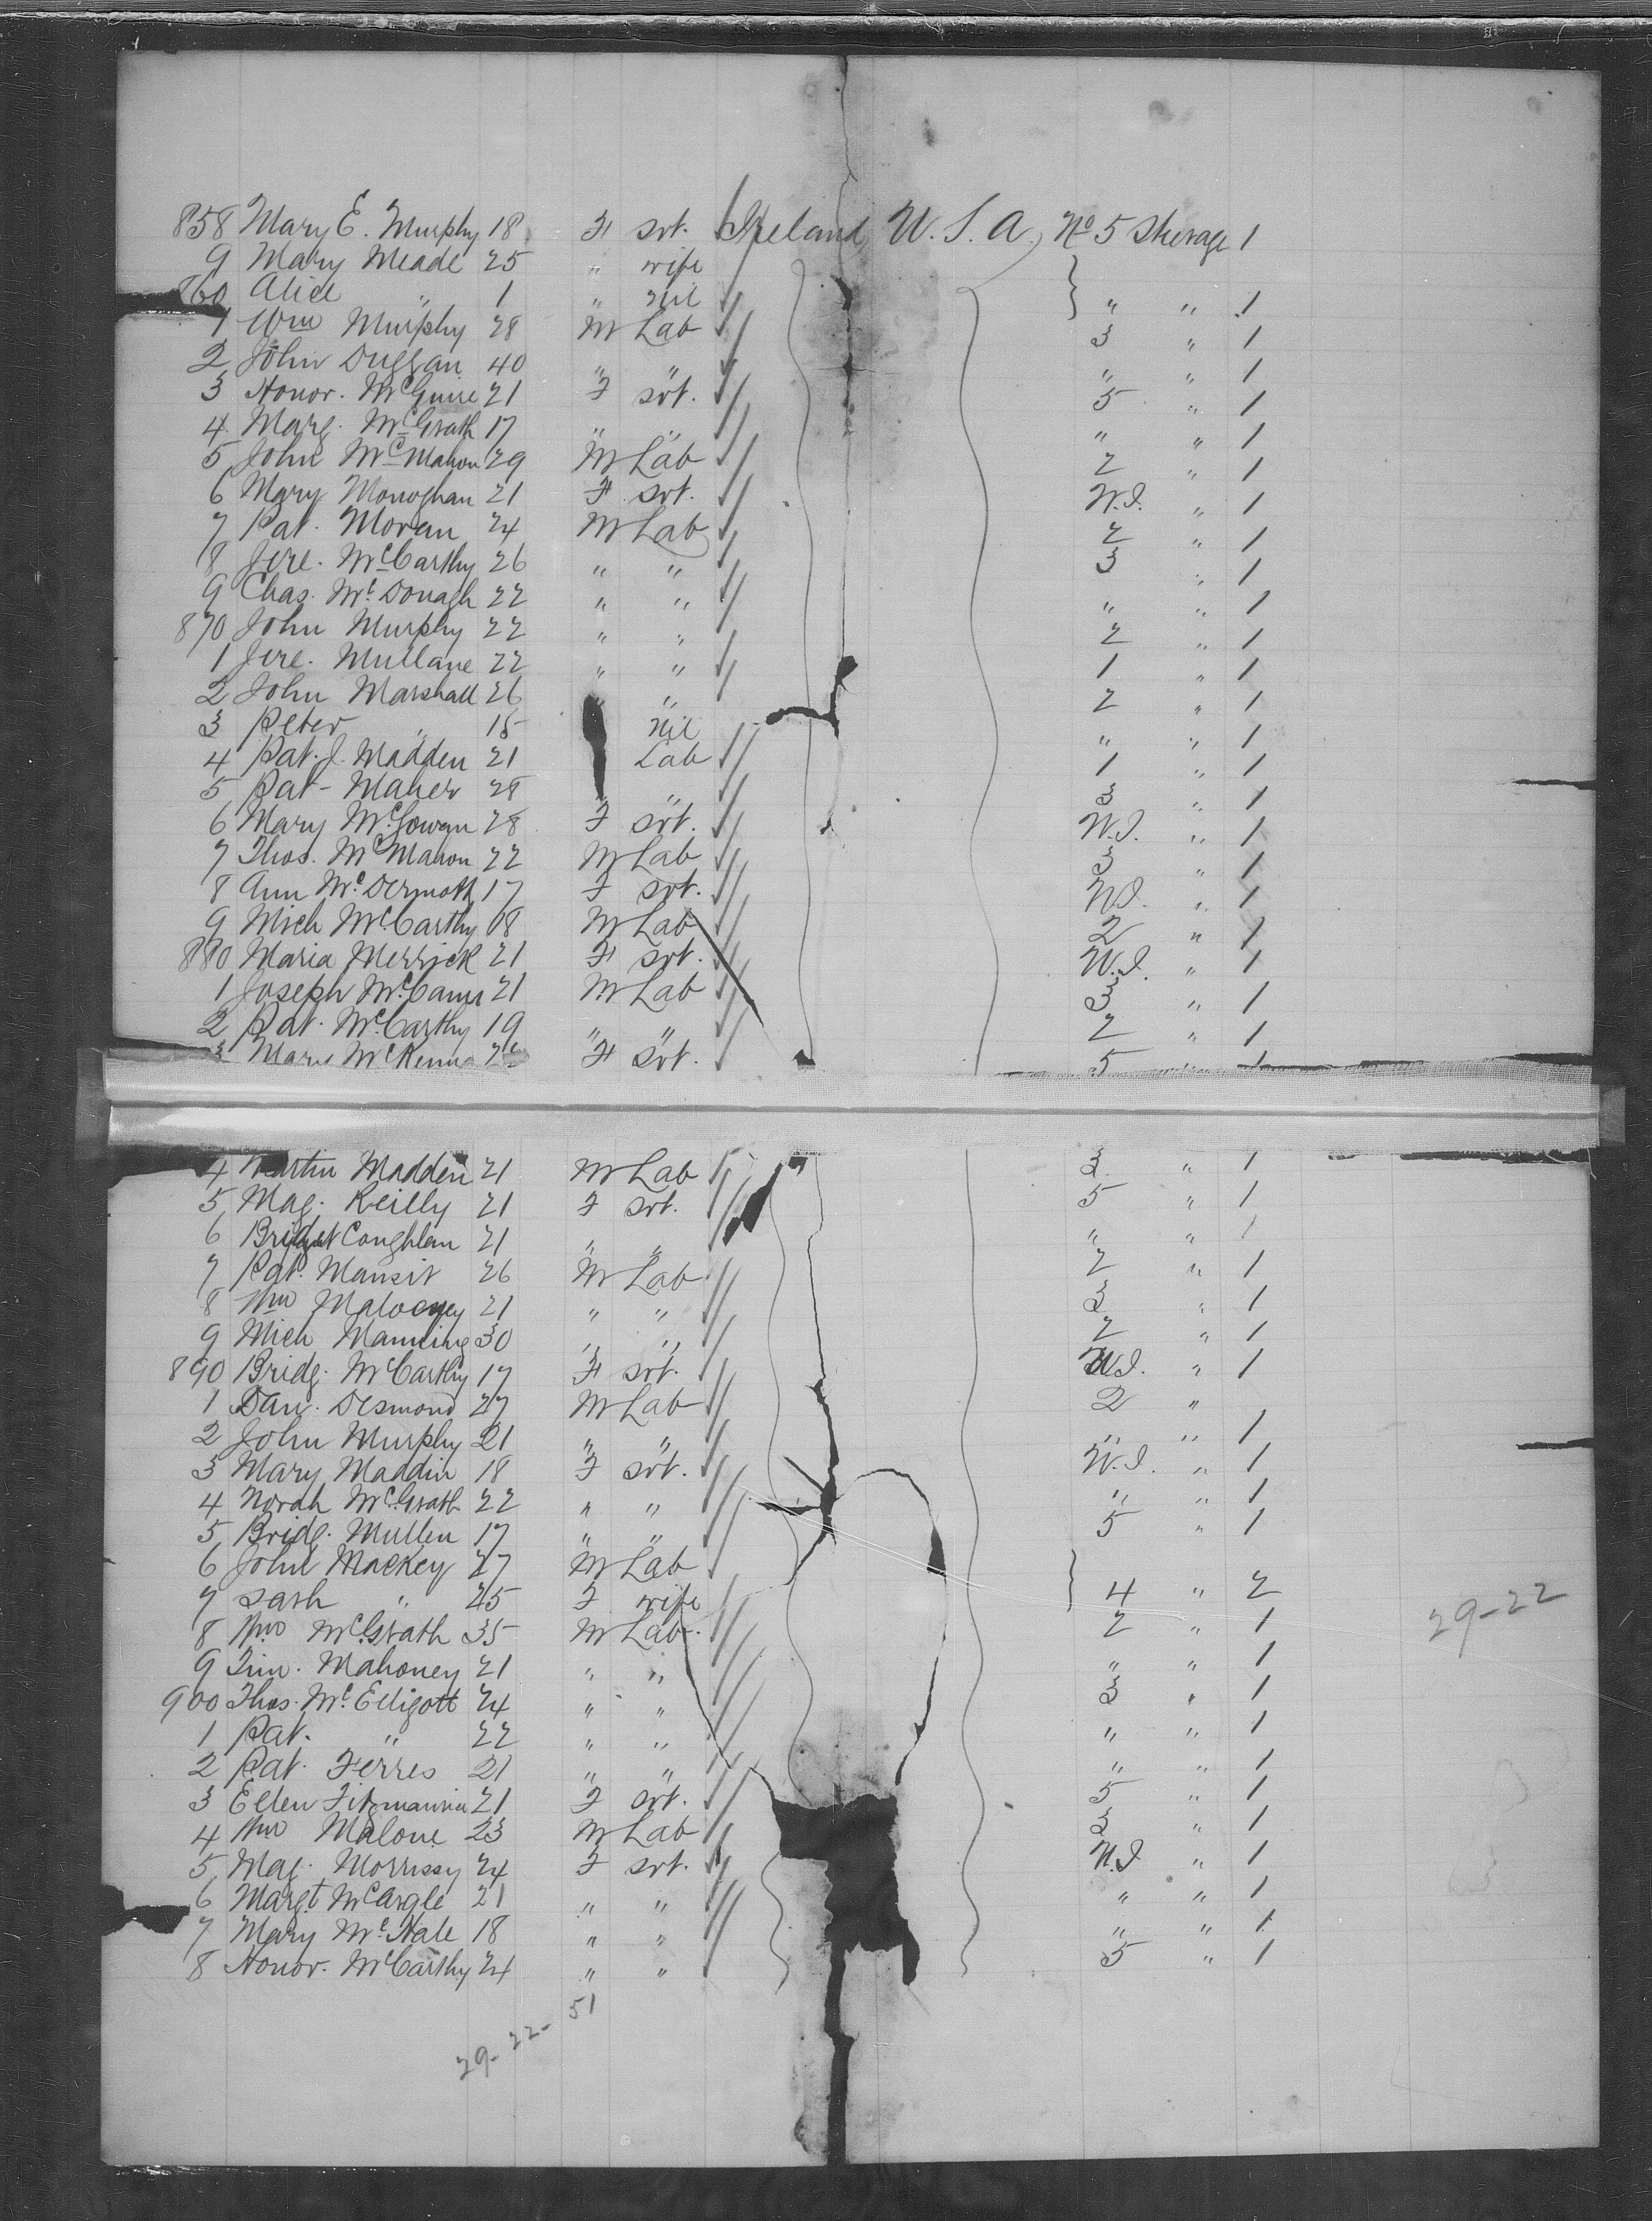 858 Mary E. Murphy 18 F Svt. Ireland U.S.A. No 5 Sterage 1
9 Mary Meade 25 " wife
860 Alice " 1 " nil " " 1
1 Wm Murphy 28 M Lab 3 " 1
2 John Duggan 40 " " " " 1
3 Honor. McGuire 21 F svt. 5 " 1
4 Marg. McGrath 17 " " " " 1
5 John McMahon 29 M Lab 2 " 1
6 Mary Monoghan 21 F svt. W.I. " 1
7 Pat. Moran 24 M Lab 2 " 1
8 Jere. McCarthy 26 " " 3 " 1
9 Chas. McDonagh 22 " " " " 1
870 John Murphy 22 " " 2 " 1
1 Jere. Mullane 22 " " 1 " 1
2 John Marshall 26 " " 2 " 1
3 Peter " 15 Nil " " 1
4 Pat. J. Madden 21 Lab 1 " 1
5 Pat- Maher 28 " " 3 " 1
6 Mary McGowan 28 F svt. W.I. " 1
7 Thos. McMahon 22 M Lab 3 " 1
8 Ann McDermott 17 F svt. W.I. " 1
9 Mich McCarthy 18 M Lab 2 " 1
880 Maria Merrick 21 F svt. W.I. " 1
1 Joseph McCann 21 M Lab 3 " 1
2 Pat. McCarthy 19 " " 2 " 1
3 Mary McKenna F svt. 5 " 1
4 Martin Madden 21 M Lab 3 " 1
5 Mag. Reilly 21 F svt. 5 " 1
6 Bridget Coughlan 21 " " " " 1
7 Pat. Mansit 26 M Lab 2 " 1
8 Wm Malooney 21 " " 3 " 1
9 Mich Manning 30 " " 2 " 1
890 Bridg. McCarthy 17 F svt. W.I. " 1
1 Dan. Desmond 27 M Lab 2 "
2 John Murphy 21 " " " " 1
3 Mary Maddin 18 F svt. W.I. " 1
4 Norah McGrath 22 " " " " 1
5 Bridg. Mullen 17 " " 5 " 1
6 John Mackey 27 M Lab
7 Sarh " 25 F wife 4 " 2 29-22
8 Wm McGrath 35 M Lab. 2 " 1
9 Tim. Mahoney 21 " " " " 1
900 Thos. McElligott 24 " " 3 " 1
1 Pat. " 22 " " " " 1
2 Pat. Ferres 21 " " " " 1
3 Ellen Fitzmaurice 21 F svt. 5 " 1
4 Wm Malone 23 M Lab 3 " 1
5 Mag. Morrissy 24 F svt. W.I " 1
6 Margt McArgle 21 " " " " 1
7 Mary McHale 18 " " " " 1
8 Honor. McCarthy 24 " " 5 " 1
29-22- 51